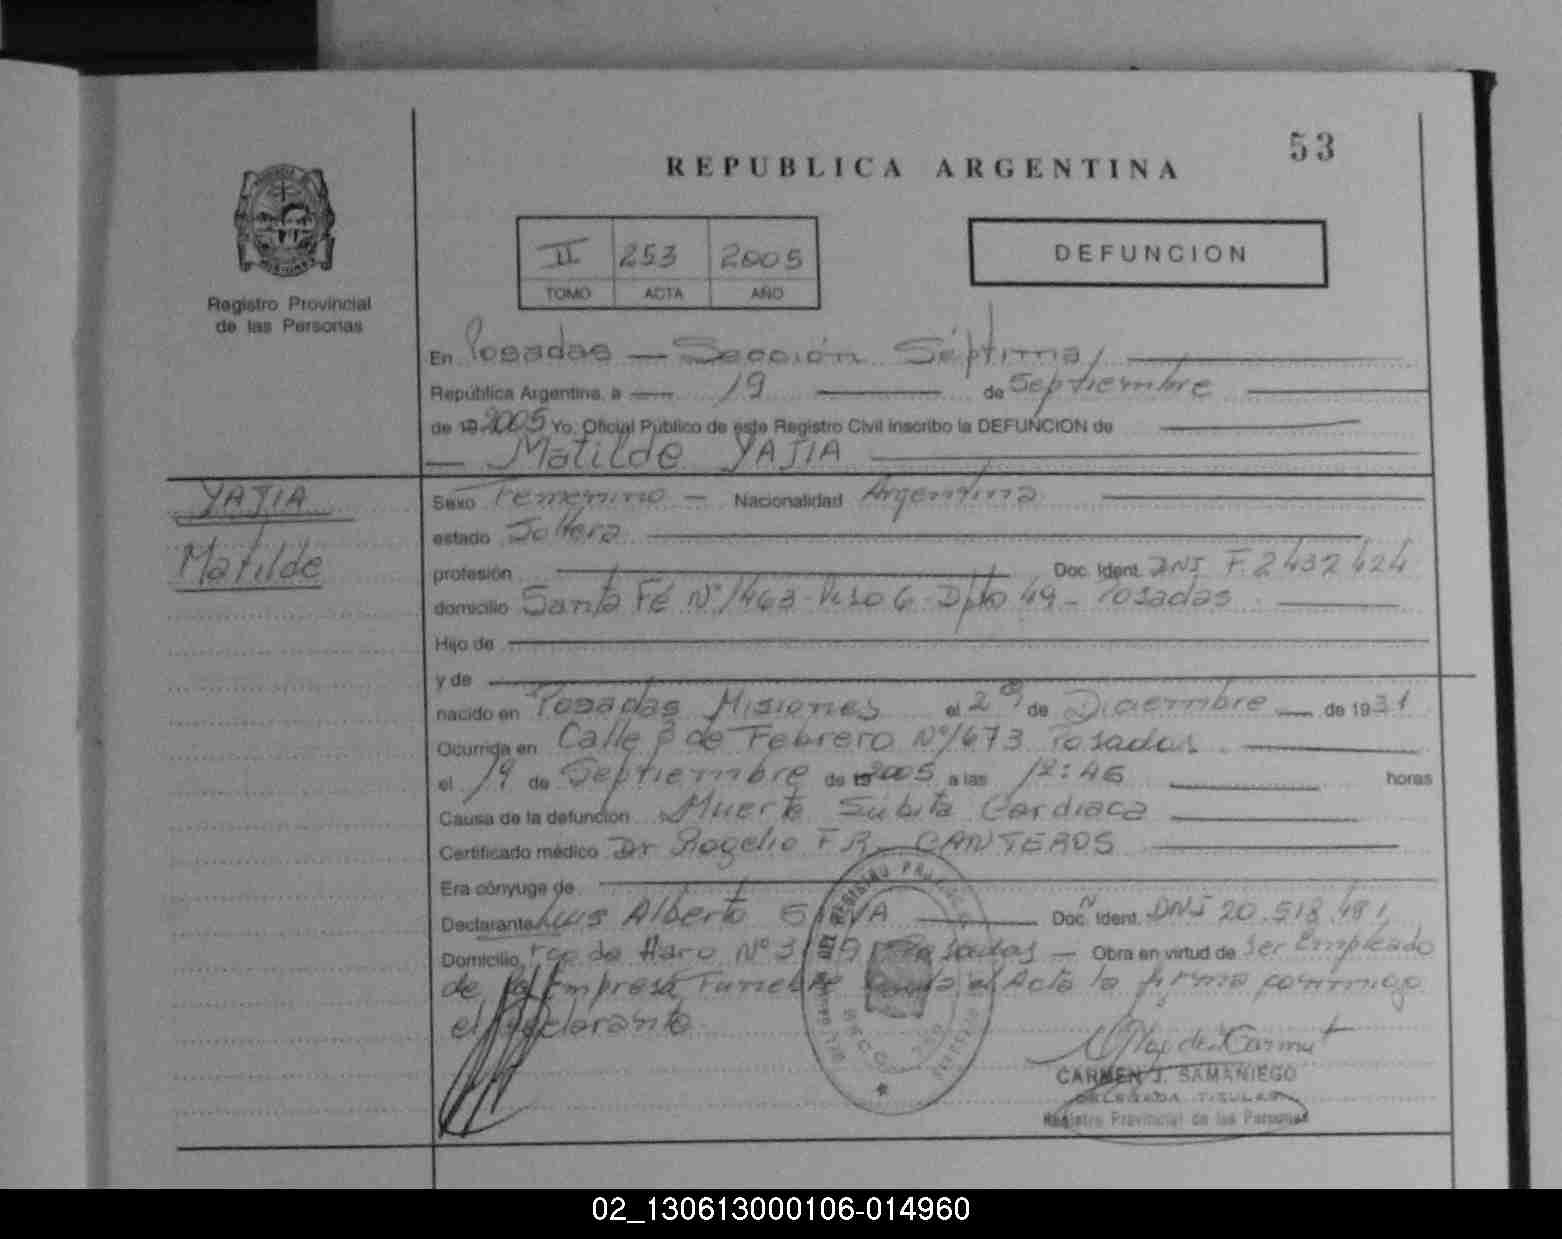 53
REPUBLICA ARGENTINA
Registro Provincial
de las Personas
II 253 2005
TOMO ACTA AÑO
DEFUNCION
En Posadas — Sección Séptima,
República Argentina, a 19 de Septiembre
de 19 2005 Yo, Oficial Público de este Registro Civil inscribo la DEFUNCION de
— Matilde YAJIA
YAJIA
Matilde
Sexo Femenino — Nacionalidad Argentina
estado Soltera
profesión Doc. Ident. DNI F. 2432424
domicilio Santa Fé Nº 1463 - Piso 6 - Dpto 49 - Posadas
Hijo de
y de
nacido en Posadas Misiones el 29 de Diciembre de 1931
Ocurrida en Calle 3 de Febrero Nº 1673 Posadas
el 19 de Septiembre de 19 2005 a las 12:45 horas
Causa de la defunción Muerte Subita Cardiaca
Certificado médico Dr Rogelio F R CANTEROS
Era cónyuge de
Declarante Luis Alberto SILVA Doc. Ident. DNI 20.518.481
Domicilio de Haro Nº Posadas — Obra en virtud de ser Empleado
de la Empresa Funebre el Acta la firma conmigo
el declarante
CARMEN J. SAMANIEGO
DELEGADA TITULAR
Registro Provincial de las Personas
02_130613000106-014960